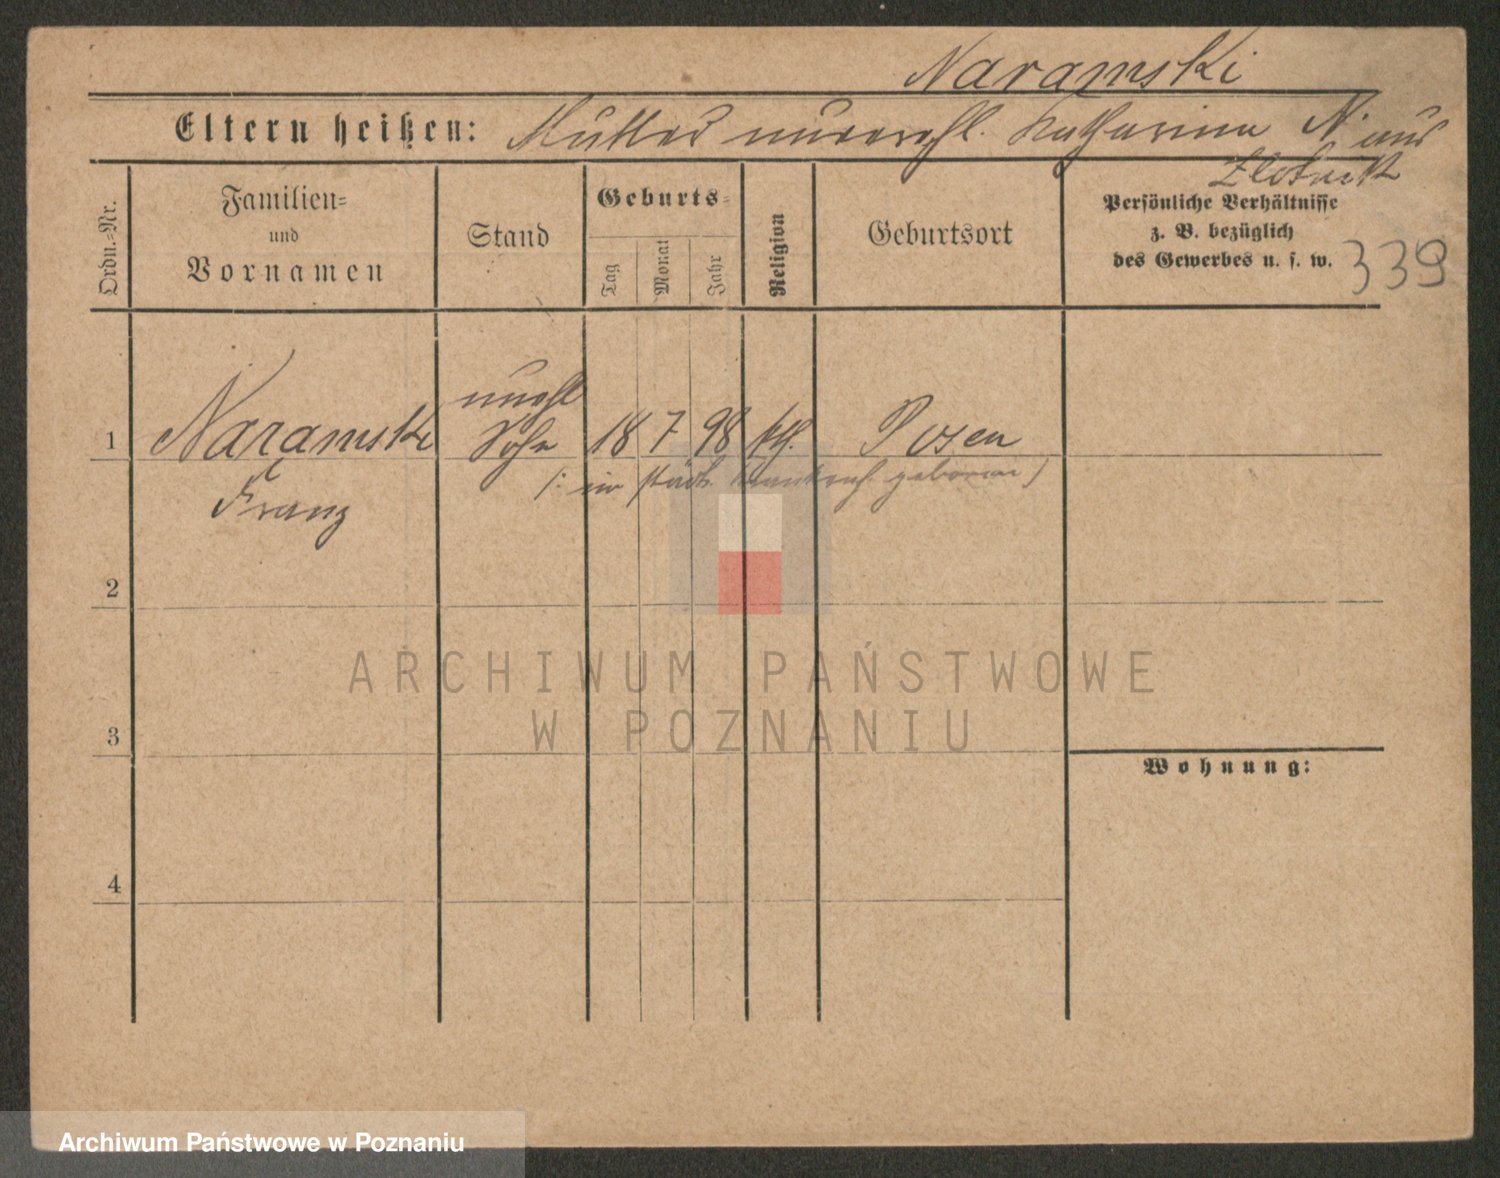 Naramski
Eltern heißen: Mutter unverehl. Katharina N. aus
Zlotnik
Ordn.-Nr.
Familien-
und
Vornamen
Stand
Geburts-
Tag
Monat
Jahr
Religion
Geburtsort
Persönliche Verhältnisse
z. B. bezüglich
des Gewerbes u. s. w.
339
unehl
1 Naramski Sohn 18 7 98 kth. Posen
(: im städt. Krankenh. geboren)
Franz
2
3
Wohnung:
4
ARCHIWUM PAŃSTWOWE
W POZNANIU
Archiwum Państwowe w Poznaniu